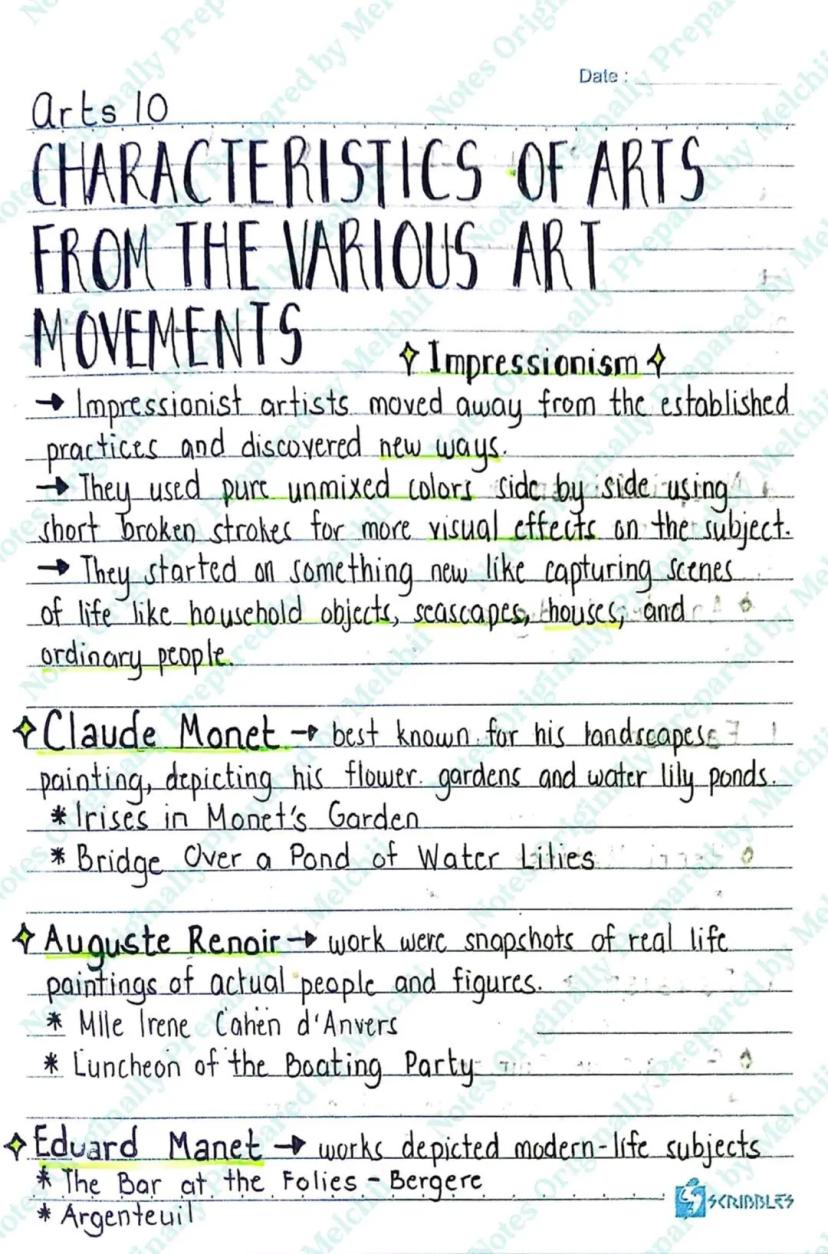 Date :
Arts 10
CHARACTERISTICS OF ARTS
FROM THE VARIOUS ART
MOVEMENTS
Impressionism
→ Impressionist artists moved away from the established
practices and discovered new ways.
→ They used pure unmixed colors side by side using
short broken strokes for more visual effects on the subject.
→ They started on something new like capturing scenes
of life like household objects, seascapes, houses, and
ordinary people.
Claude Monet → best known for his landscapes
painting, depicting his flower gardens and water lily ponds.
* Irises in Monet's Garden
* Bridge Over a Pond of Water Lilies
Auguste Renoir → work were snapshots of real life
paintings of actual people and figures.
* Mlle Irene Cahen d'Anvers
* Luncheon of the Boating Party
Eduard Manet → works depicted modern-life subjects
* The Bar at the Folies - Bergere
* Argenteuil
SCRIBBLES
Notes Originally Prepared by Melchii